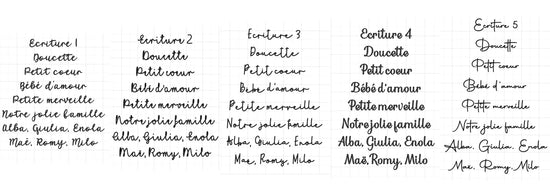 Ecriture 1
Doucette
Petit coeur
Bébé d'amour
Petite merveille
Notre jolie famille
Alba, Giulia, Enola
Maé, Romy, Milo
Ecriture 2
Doucette
Petit coeur
Bébé d'amour
Petite merveille
Notre jolie famille
Alba, Giulia, Enola
Maé, Romy, Milo
Ecriture 3
Doucette
Petit coeur
Bébé d'amour
Petite merveille
Notre jolie famille
Alba, Giulia, Enola
Maé, Romy, Milo
Ecriture 4
Doucette
Petit coeur
Bébé d'amour
Petite merveille
Notre jolie famille
Alba, Giulia, Enola
Maé, Romy, Milo
Ecriture 5
Doucette
Petit coeur
Bébé d'amour
Petite merveille
Notre jolie famille
Alba, Giulia, Enola
Maé, Romy, Milo